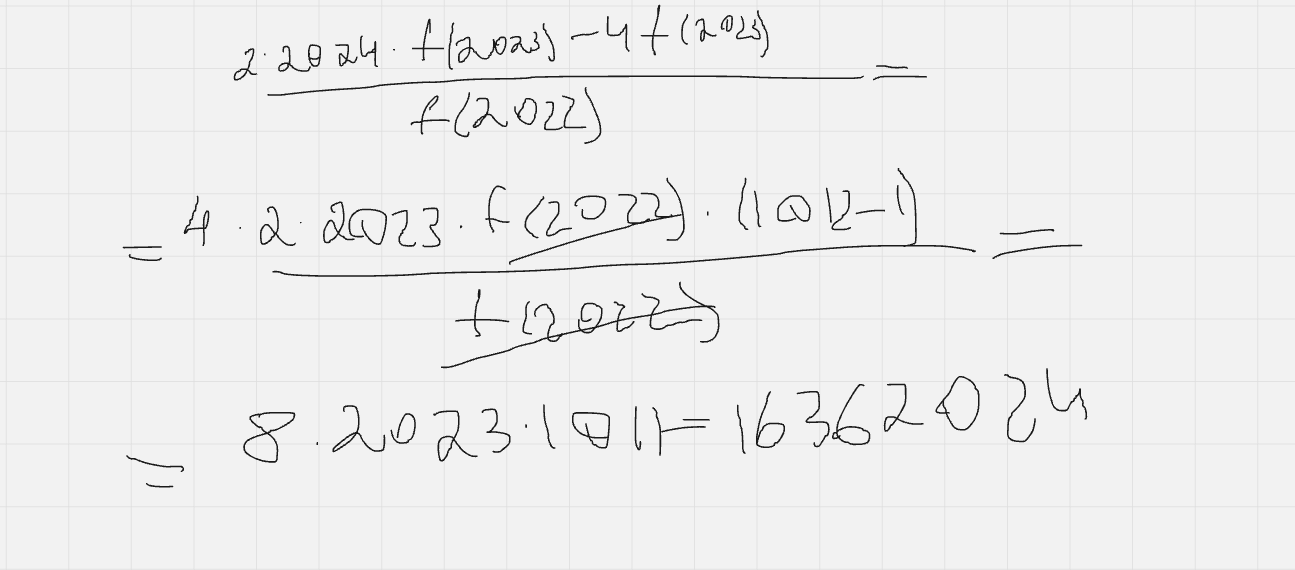 2·2024·f(2023)-4f(2023)
f(2022) =
= 4·2·2023·f(2022)·(1012-1)
f(2022) =
= 8·2023·1011=16362024